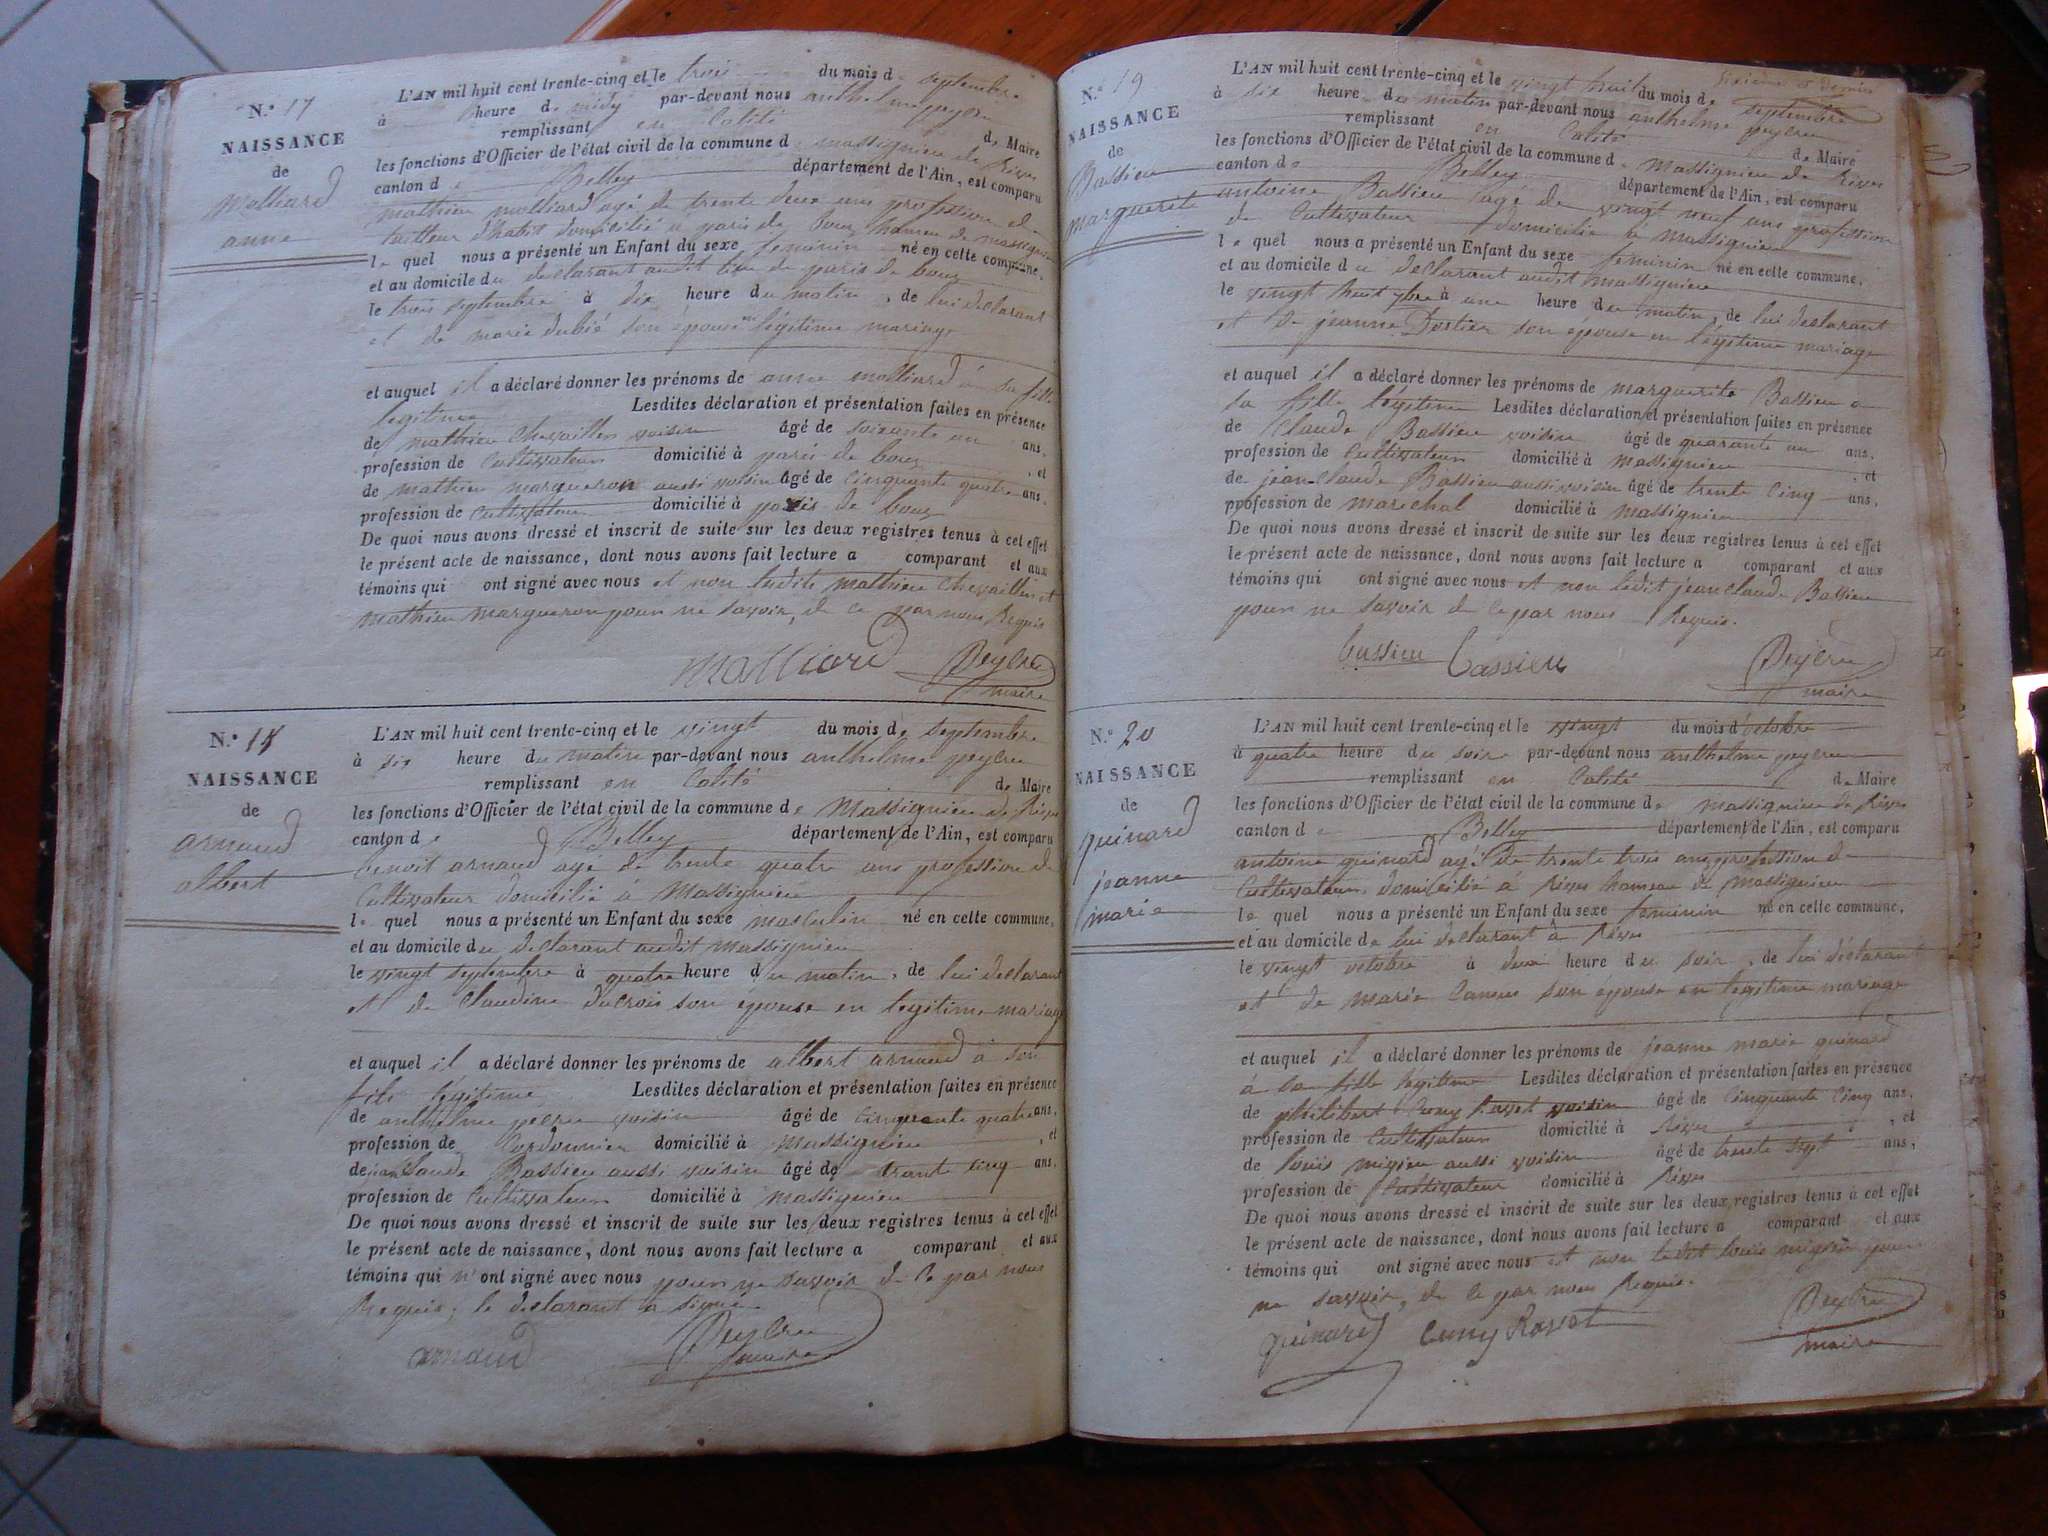 N.° 17
NAISSANCE
de
Molliard
anne
L'AN mil huit cent trente-cinq et le trois du mois de septembre
à heure de midy par-devant nous anthelme peyere
remplissant en Calité de Maire
les fonctions d'Officier de l'état civil de la commune de massignieu de Rives
canton de Belley département de l'Ain, est comparu
mathieu molliard agé de trente deux ans profession de
tailleur d'habit domicilié à paris de bouz hameau de massignieu
le quel nous a présenté un Enfant du sexe feminin né en cette commune,
et au domicile du declarant audit lieu de paris de bouz
le trois septembre à dix heure du matin, de lui declarant
et de marie dubié son épouse en légitime mariage
et auquel il a déclaré donner les prénoms de anne molliard à sa fille
legitime Lesdites déclaration et présentation faites en présence
de mathieu Chevaillen voisin âgé de soixante un ans,
profession de Cultivateur domicilié à paris de bouz , et
de mathieu margueron aussi voisin âgé de Cinquante quatre ans,
profession de Cultivateur domicilié à paris de bouz
De quoi nous avons dressé et inscrit de suite sur les deux registres tenus à cet effet
le présent acte de naissance, dont nous avons fait lecture a comparant et aux
témoins qui ont signé avec nous et non ledits mathieu Chevaillen et
mathieu margueron pour ne savoir, de ce par nous Requis
Molliard Peyere
maire
N.° 18
NAISSANCE
de
arnaud
albert
L'AN mil huit cent trente-cinq et le vingt du mois de septembre
à six heure du matin par-devant nous anthelme peyere
remplissant en Calité de Maire
les fonctions d'Officier de l'état civil de la commune de Massignieu de Rives
canton de Belley département de l'Ain, est comparu
benoit arnaud agé de trente quatre ans profession de
Cultivateur domicilié à Massignieu
le quel nous a présenté un Enfant du sexe masculin né en cette commune,
et au domicile du declarant audit massignieu
le vingt septembre à quatre heure du matin, de lui declarant
et de Claudine ducrois son épouse en legitime mariage
et auquel il a déclaré donner les prénoms de albert arnaud à son
fils légitime Lesdites déclaration et présentation faites en présence
de anthelme peere voisin âgé de Cinquante quatre ans,
profession de Cordonnier domicilié à Massignieu , et
de jean Claude Bassieu aussi voisin âgé de trante cinq ans,
profession de Cultivateur domicilié à massignieu
De quoi nous avons dressé et inscrit de suite sur les deux registres tenus à cet effet
le présent acte de naissance, dont nous avons fait lecture a comparant et aux
témoins qui n'ont signé avec nous pour ne savoir de ce par nous
Requis, le declarant a signé
arnaud Peyere
maire
N.° 19
NAISSANCE
de
Bassieu
marguerite
L'AN mil huit cent trente-cinq et le vingt huit du mois de septembre
à six heure du matin par-devant nous anthelme peyere
remplissant en Calité de Maire
les fonctions d'Officier de l'état civil de la commune de Massignieu de Rives
canton de Belley département de l'Ain, est comparu
antoine Bassieu agé de vingt neuf ans profession
de Cultivateur domicilié à massignieu
le quel nous a présenté un Enfant du sexe feminin né en cette commune,
et au domicile du declarant audit massignieu
le vingt huit 7bre à une heure du matin, de lui declarant
et de jeanne Dortier son épouse en légitime mariage
et auquel il a déclaré donner les prénoms de marguerite Bassieu a
sa fille légitime Lesdites déclaration et présentation faites en présence
de Claude Bassieu voisin âgé de quarante un ans,
profession de Cultivateur domicilié à massignieu , et
de jean-claude Bassieu aussi voisin âgé de trente Cinq ans,
profession de marechal domicilié à massignieu
De quoi nous avons dressé et inscrit de suite sur les deux registres tenus à cet effet
le présent acte de naissance, dont nous avons fait lecture a comparant et aux
témoins qui ont signé avec nous et non ledit jean claude Bassieu
pour ne savoir de ce par nous Requis.
bassieu bassieu Peyere
maire
N.° 20
NAISSANCE
de
quinard
jeanne
marie
L'AN mil huit cent trente-cinq et le vingt du mois d'octobre
à quatre heure du soir par-devant nous anthelme peyere
remplissant en Calité de Maire
les fonctions d'Officier de l'état civil de la commune de massignieu de Rives
canton de Belley département de l'Ain, est comparu
antoine quinard agé de trente trois ans profession de
Cultivateur domicilié à Rives hameau de massignieu
le quel nous a présenté un Enfant du sexe feminin né en cette commune,
et au domicile de lui declarant à Rives
le vingt octobre à deux heure du soir, de lui déclarant
et de marie Caneus son epouse en legitime mariage
et auquel il a déclaré donner les prénoms de jeanne marie quinard
à sa fille légitime Lesdites déclaration et présentation faites en présence
de philibert Cuny Ravet voisin âgé de Cinquante Cinq ans,
profession de Cultivateur domicilié à Rives , et
de louis migieu aussi voisin âgé de trente sept ans,
profession de Cultivateur domicilié à Rives
De quoi nous avons dressé et inscrit de suite sur les deux registres tenus à cet effet
le présent acte de naissance, dont nous avons fait lecture a comparant et aux
témoins qui ont signé avec nous et non ledit louis migieu pour
ne savoir, de ce par nous Requis.
quinard Cuny Ravet Peyere
maire